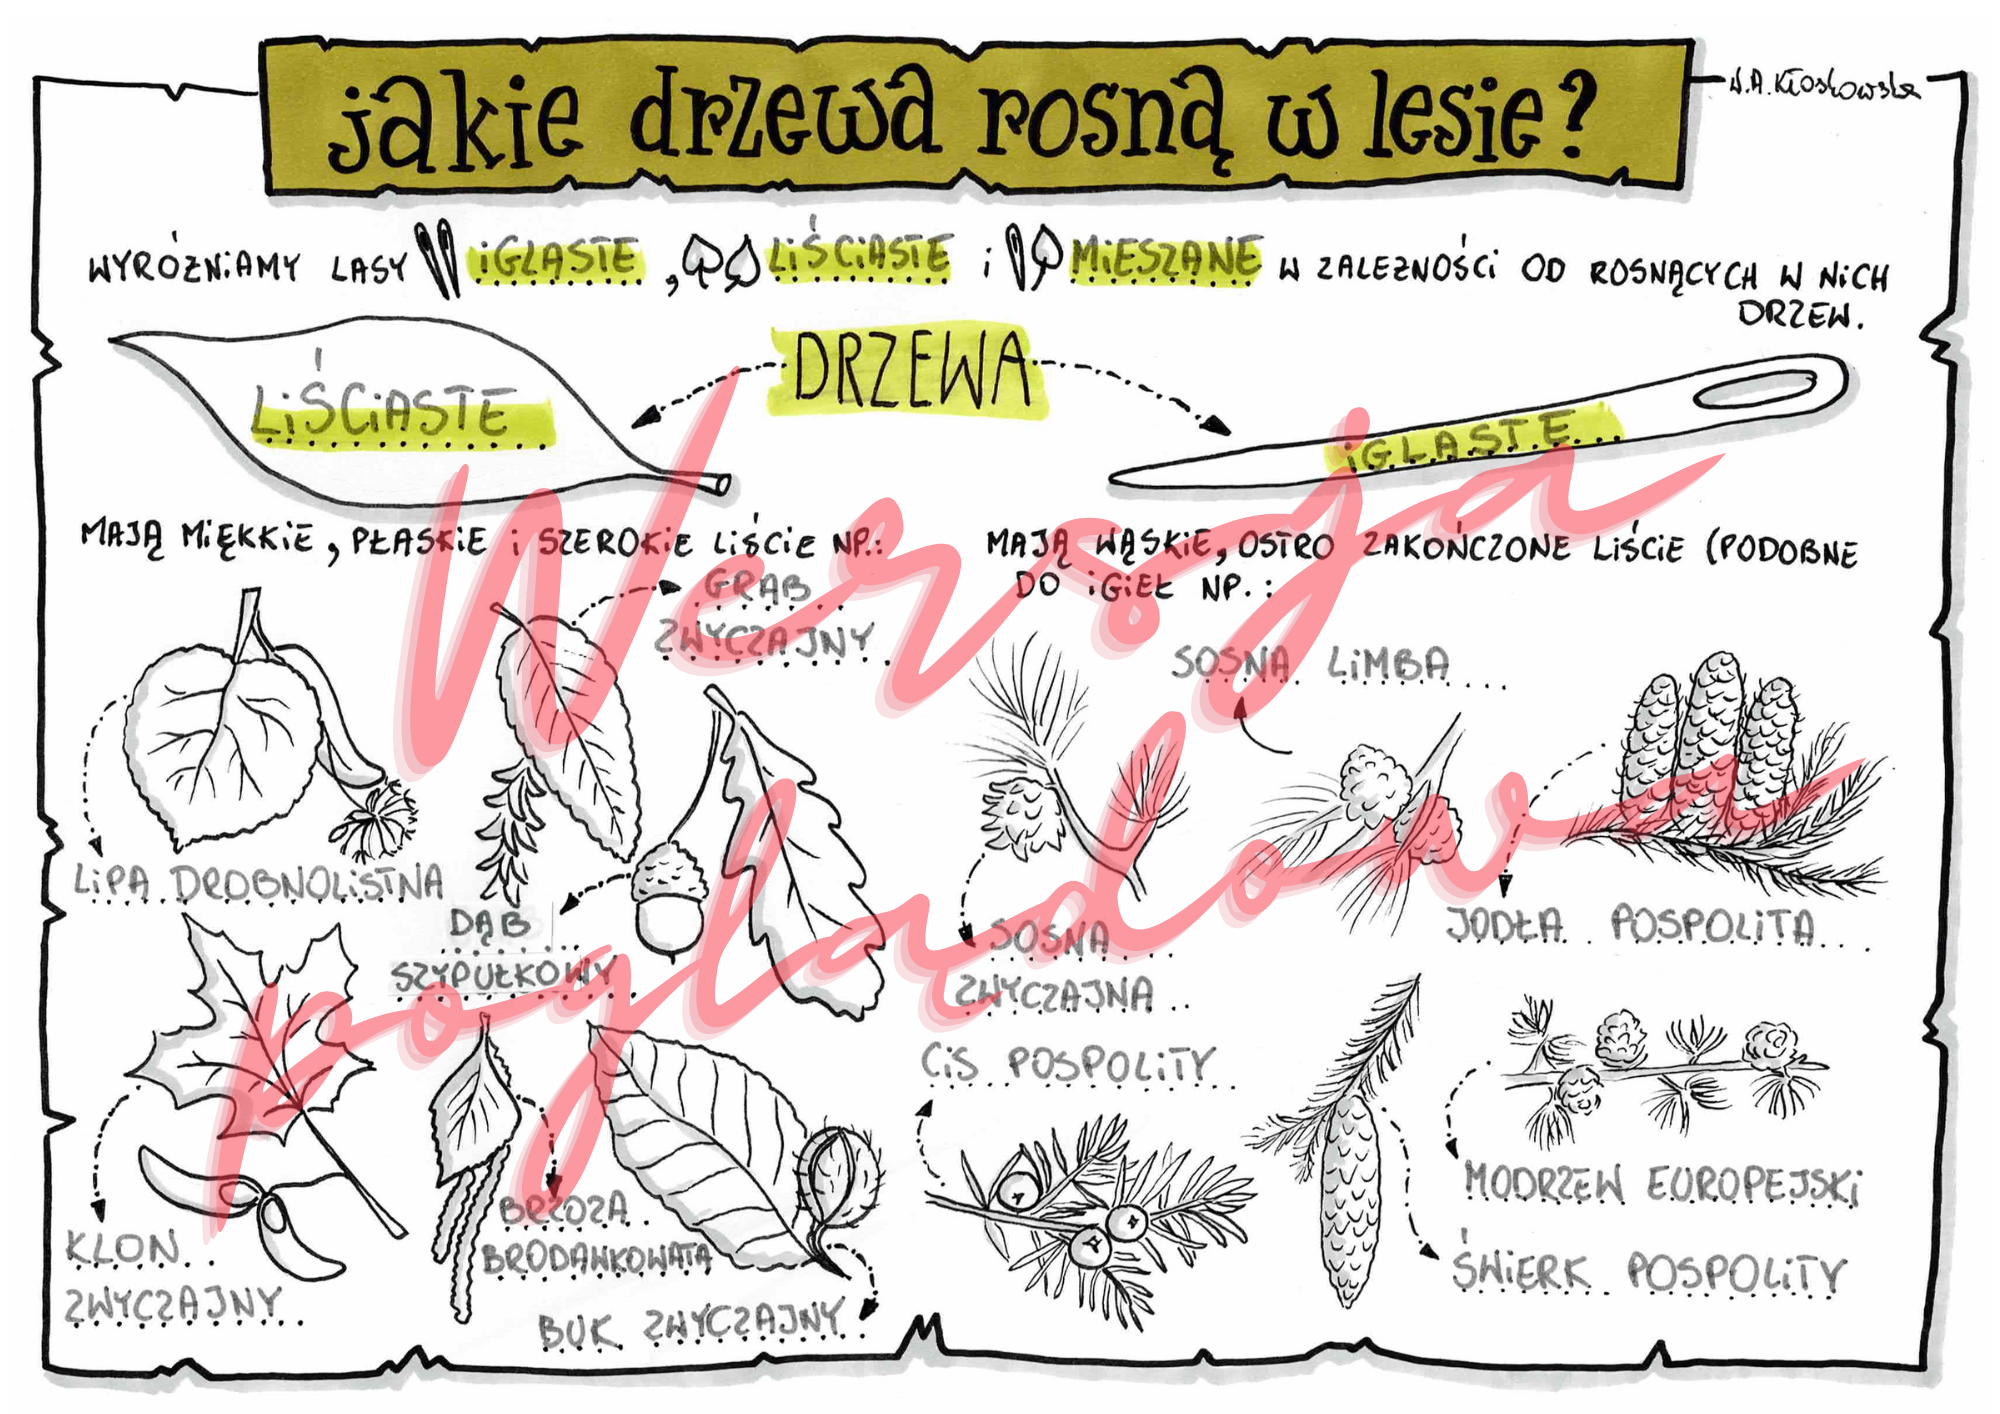 jakie drzewa rosną w lesie?
W.A. Kłoskowska
WYRÓŻNIAMY LASY IGLASTE, LIŚCIASTE i MIESZANE W ZALEŻNOŚCI OD ROSNĄCYCH W NICH
DRZEW.
DRZEWA
LIŚCIASTE
IGLASTE
MAJĄ MIĘKKIE, PŁASKIE i SZEROKIE LIŚCIE NP.:
MAJĄ WĄSKIE, OSTRO ZAKOŃCZONE LIŚCIE (PODOBNE
DO IGIEŁ NP.:
GRAB
ZWYCZAJNY
LIPA DROBNOLISTNA
DĄB
SZYPUŁKOWY
KLON
ZWYCZAJNY
BRZOZA
BRODAWKOWATA
BUK ZWYCZAJNY
SOSNA LIMBA
SOSNA
ZWYCZAJNA
JODŁA POSPOLITA
CIS POSPOLITY
MODRZEW EUROPEJSKI
ŚWIERK POSPOLITY
Wersja
poglądowa